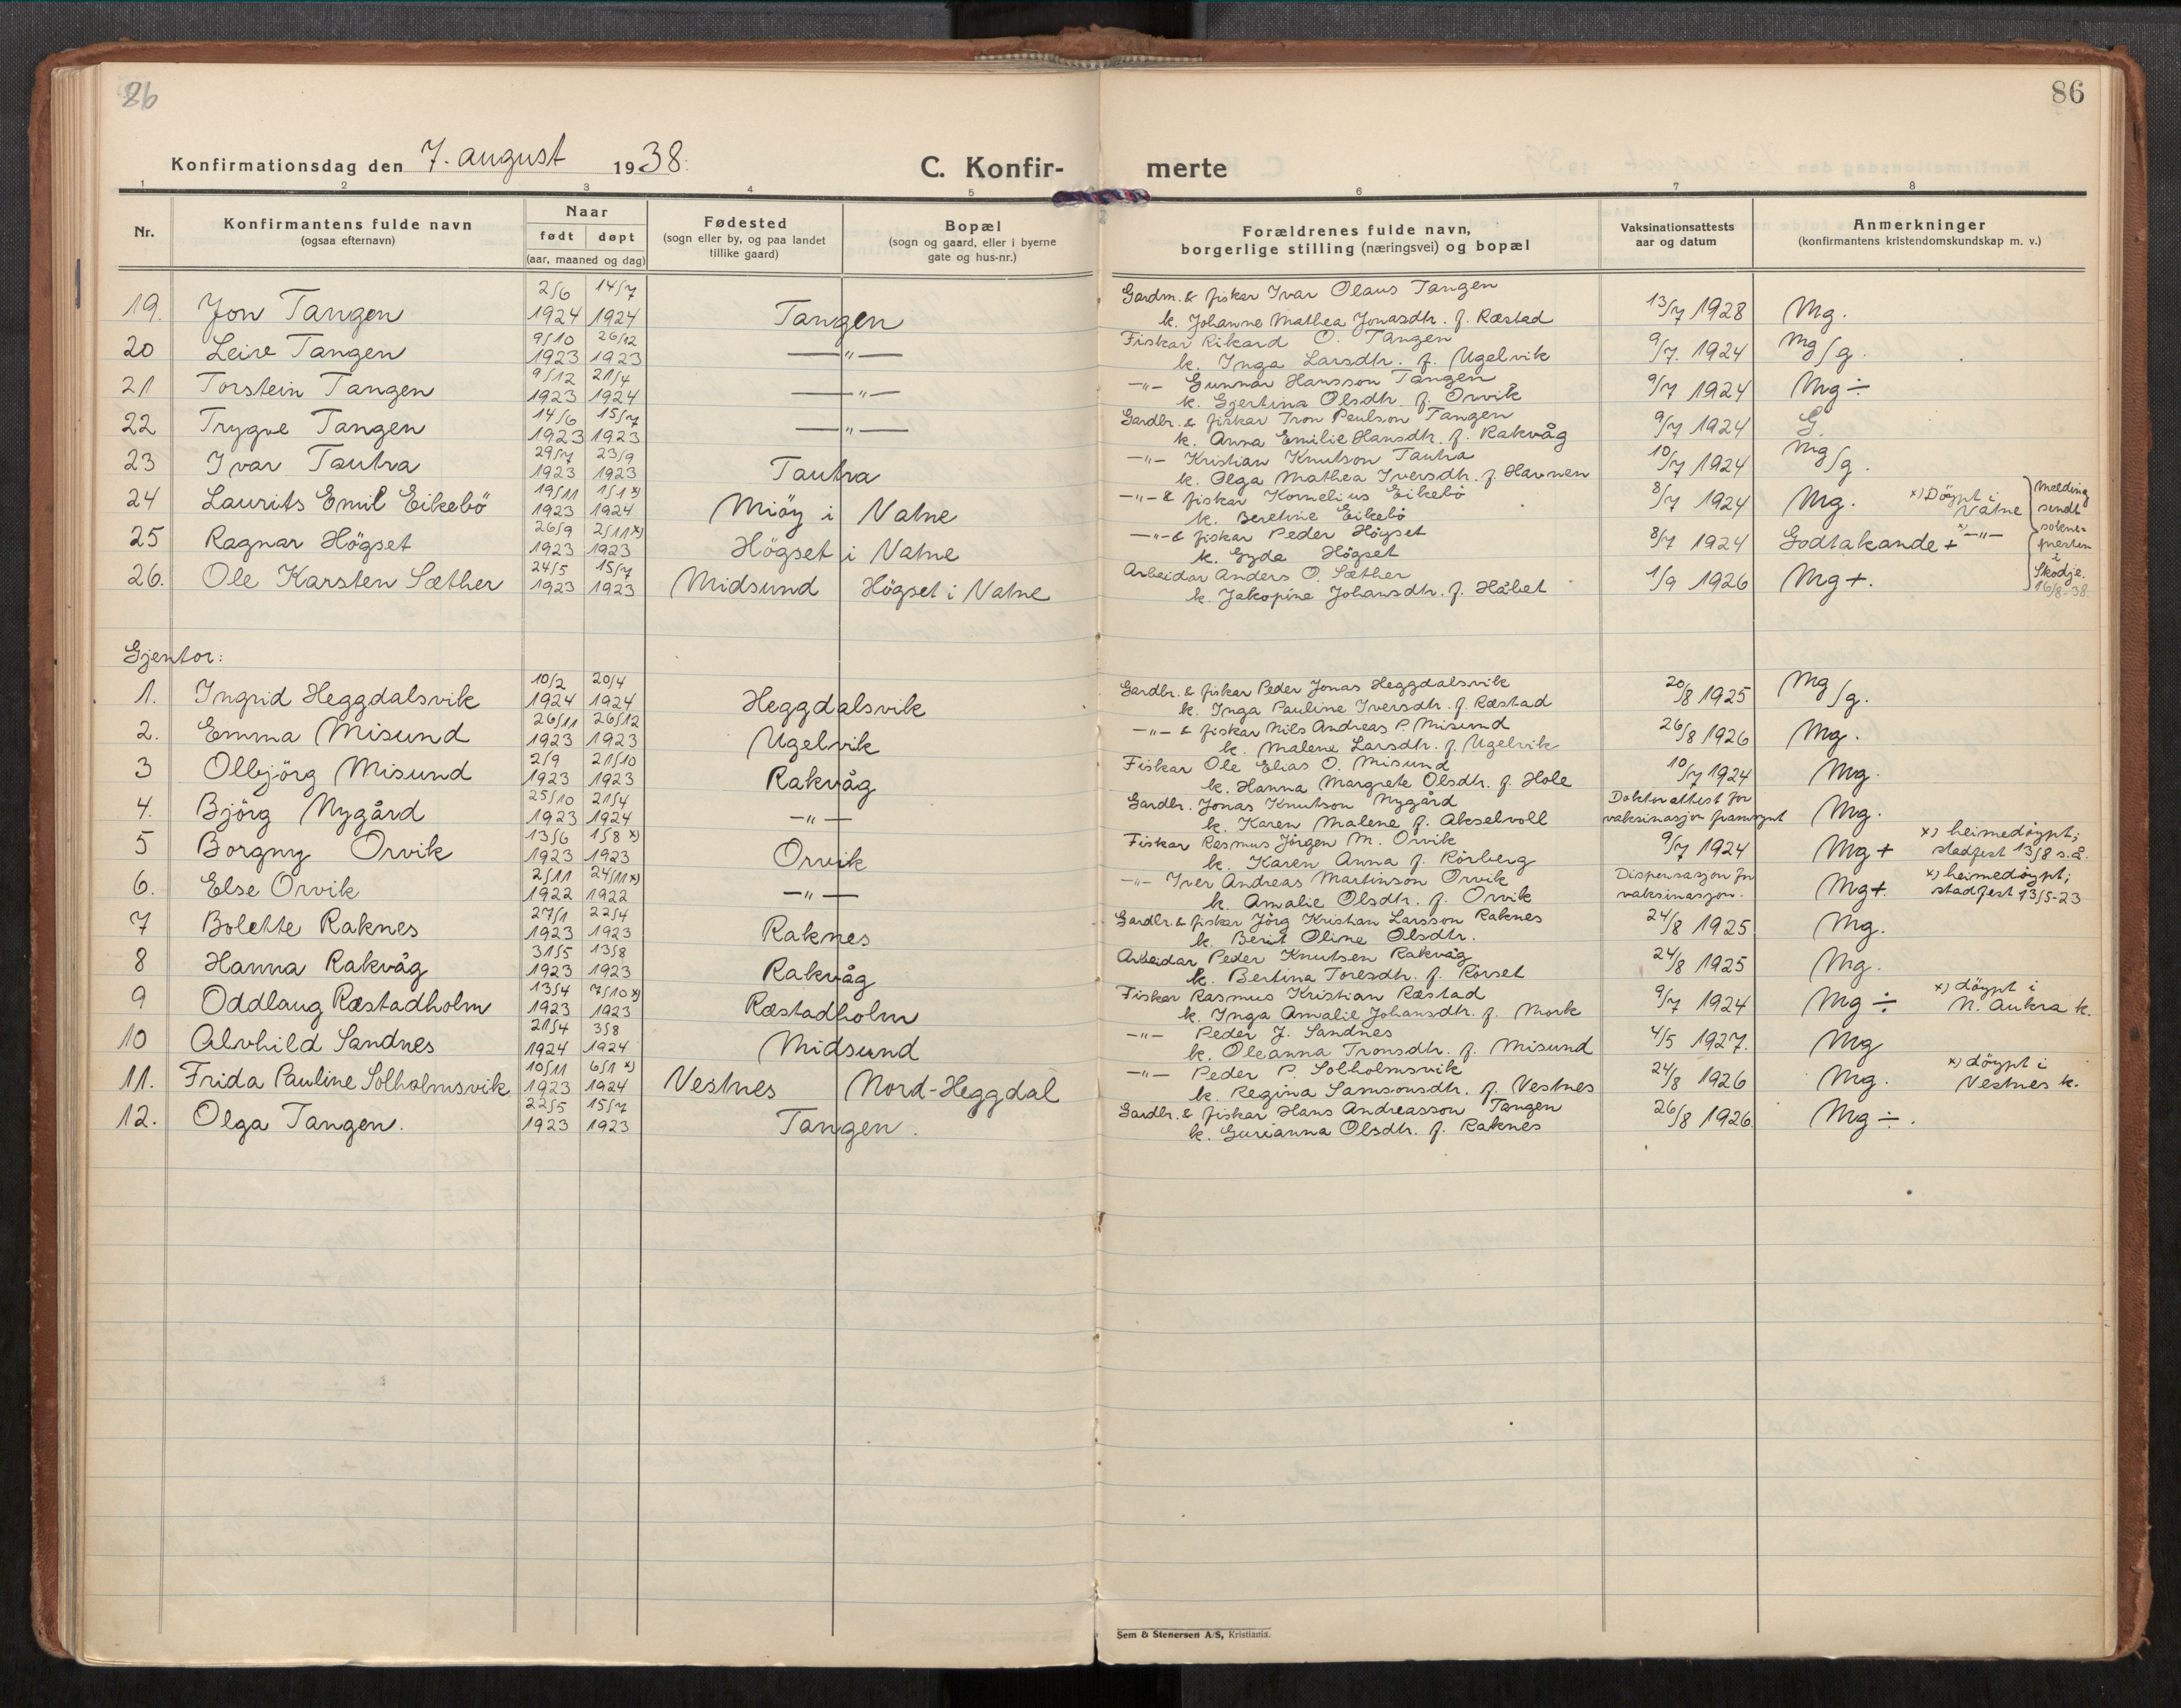 86
86
Konfirmationsdag den 7. august 1938.
C. Konfir-
merte
1 2 3 4 5 6 7 8
Nr.
Konfirmantens fulde navn
(ogsaa efternavn)
Naar
født døpt
(aar, maaned og dag)
Fødested
(sogn eller by, og paa landet
tillike gaard)
Bopæl
(sogn og gaard, eller i byerne
gate og hus-nr.)
Forældrenes fulde navn,
borgerlige stilling (næringsvei) og bopæl
Vaksinationsattests
aar og datum
Anmerkninger
(konfirmantens kristendomskundskap m. v.)
2/6 14/7 Gardm. & fiskar Ivar Olaus Tangen
19. Jon Tangen 1924 1924 Tangen k. Johanne Mathea Jonasdtr. f. Ræstad 13/7 1928 Mg.
9/10 26/12 Fiskar Rikard O. Tangen
20 Leive Tangen 1923 1923 —"— k. Inga Larsdtr. f. Ugelvik 9/7. 1924 Mg/g.
9/12 21/4 —"— Gunnar Hansson Tangen
21 Torstein Tangen 1923 1924 —"— k. Gjertina Olsdtr. f. Orvik 9/7 1924 Mg ÷
14/6 15/7 Gardbr. & fiskar Tron Paulson Tangen
22 Trygve Tangen 1923 1923 —"— k. Anna Emilie Hansdtr. f. Rakvåg 9/7 1924 G.
29/7 23/9 —"— Kristian Knutson Tautra
23 Ivar Tautra 1923 1923 Tautra k. Olga Mathea Iversdtr. f. Havnen 10/7 1924 Mg/g.
19/11 1/1 x) —"— & fiskar Kornelius Eikebö
24 Laurits Emil Eikebö 1923 1924 Miöy i Vatne k. Beretine Eikebö 8/7 1924 Mg. x) Döypt i Vatne
26/9 2/11 x) —"— & fiskar Peder Högset
25 Ragnar Högset 1923 1923 Högset i Vatne k. Gyda Högset 8/7 1924 Godtakande + x) —"—
24/5 15/7 Arbeidar Anders O. Sæther
26. Ole Karsten Sæther 1923 1923 Midsund Högset i Vatne k. Jakopine Johansdtr. f. Håbet 1/9 1926 Mg +.
Melding
sendt
sokne-
presten
i
Skodje.
16/8-38.
Gjentor:
10/2 20/4 Gardbr. & fiskar Peder Jonas Heggdalsvik
1. Ingrid Heggdalsvik 1924 1924 Heggdalsvik k. Inga Pauline Iversdtr. f. Ræstad 20/8 1925 Mg/g.
26/11 26/12 —"— & fiskar Nils Andreas P. Misund
2. Emma Misund 1923 1923 Ugelvik k. Malene Larsdtr. f. Ugelvik 26/8 1926 Mg.
2/9 21/10 Fiskar Ole Elias O. Misund
3 Olbjörg Misund 1923 1923 Rakvåg k. Hanna Margrete Olsdtr. f. Hole 10/7 1924 Mg.
25/10 21/4 Gardbr. Jonas Knutson Nygård Doktorattest for
4. Björg Nygård 1923 1924 —"— k. Karen Malene f. Akselvoll vaksinasjon framsynt Mg.
13/6 1/8 x) Fiskar Rasmus Jörgen M. Orvik x) heimedöypt;
5 Borgny Orvik 1923 1923 Orvik k. Karen Anna f. Rörberg 9/7 1924 Mg + stadfest 13/8 s.å.
2/11 24/11 x) —"— Iver Andreas Martinson Orvik Dispensasjon for x) heimedöypt;
6. Else Orvik 1922 1922 —"— k. Amalie Olsdtr. f. Orvik vaksinasjon. Mg +. stadfest 13/5-23
27/1 22/4 Gardbr. & fiskar Jörg Kristian Larsson Raknes
7 Bolette Raknes 1923 1923 Raknes k. Berit Oline Olsdtr. 24/8 1925 Mg.
31/5 13/8 Arbeidar Peder Knutsen Rakvåg
8 Hanna Rakvåg 1923 1923 Rakvåg k. Bertina Toresdtr. f. Rörset 24/8 1925 Mg.
13/4 7/10 x) Fiskar Rasmus Kristian Ræstad x) döypt i
9 Oddlaug Ræstadholm 1923 1923 Ræstadholm k. Inga Amalie Johansdtr. f. Mork 9/7 1924 Mg ÷ N. Aukra k.
21/4 3/8 —"— Peder J. Sandnes
10 Alvhild Sandnes 1924 1924 Midsund k. Oleanna Tronsdtr. f. Misund 4/5 1927. Mg
10/11 6/1 x) —"— Peder P. Solholmsvik x) döypt i
11. Frida Pauline Solholmsvik 1923 1924 Vestnes Nord-Heggdal k. Regina Samsonsdtr. f. Vestnes 24/8 1926 Mg. Vestnes k.
22/5 15/7 Gardbr. & fiskar Hans Andreasson Tangen
12. Olga Tangen. 1923 1923 Tangen. k. Gurianna Olsdtr. f. Raknes 26/8 1926. Mg ÷.
Sem & Stenersen A/S, Kristiania.